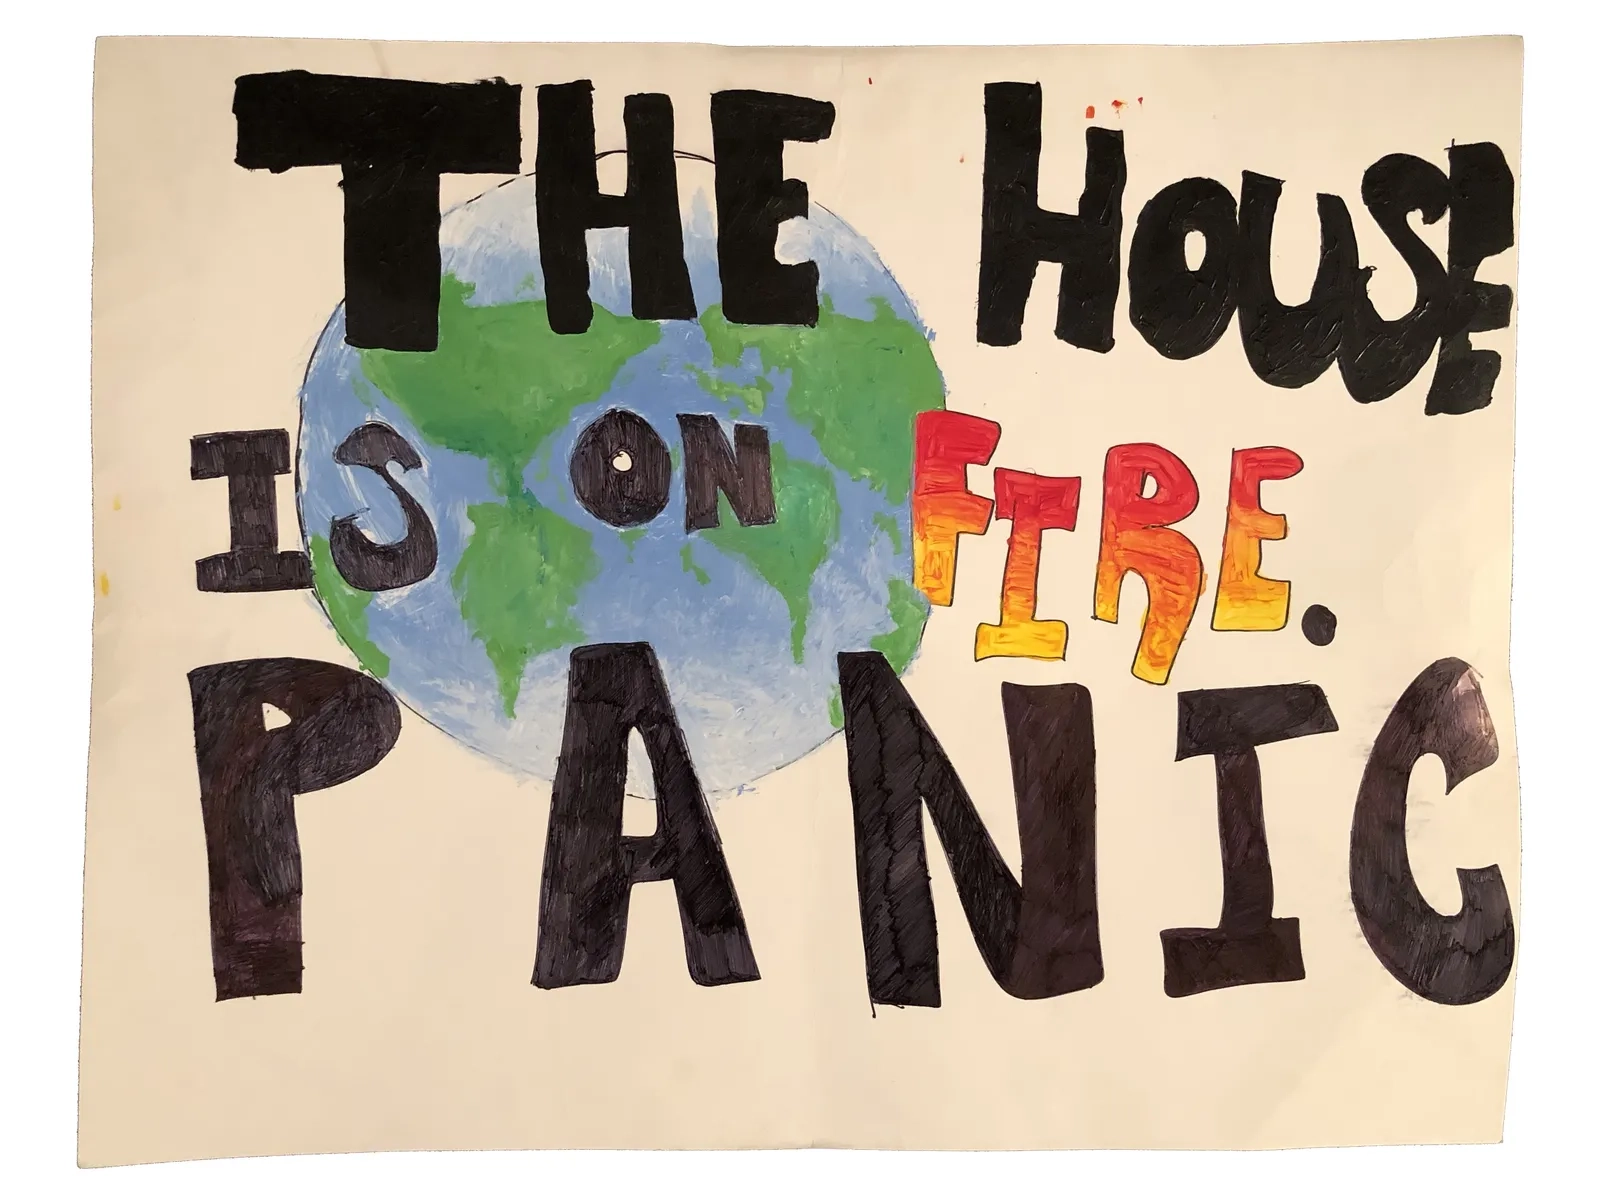 THE HOUSE
IS ON FIRE.
PANIC